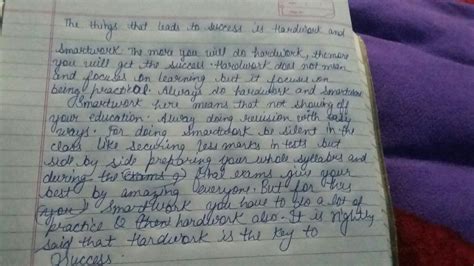 The things that leads to success is Hardwork and
smartwork. The more you will do hardwork, the more
you will get the success. Hardwork does not mean
and focus on learning but it focuses on
being practical. Always do hardwork and smartwork
Smartwork here means that not showing off
your education. Alway doing revision with easy
ways. For doing smartwork be silent in the
class like securing less marks in tests but
side by side preparing your whole syllabus and
during the exams give your
best by amazing everyone. But for this
smartwork you have to do a lot of
practice & then hardwork also. It is rightly
said that Hardwork is the key to
success.